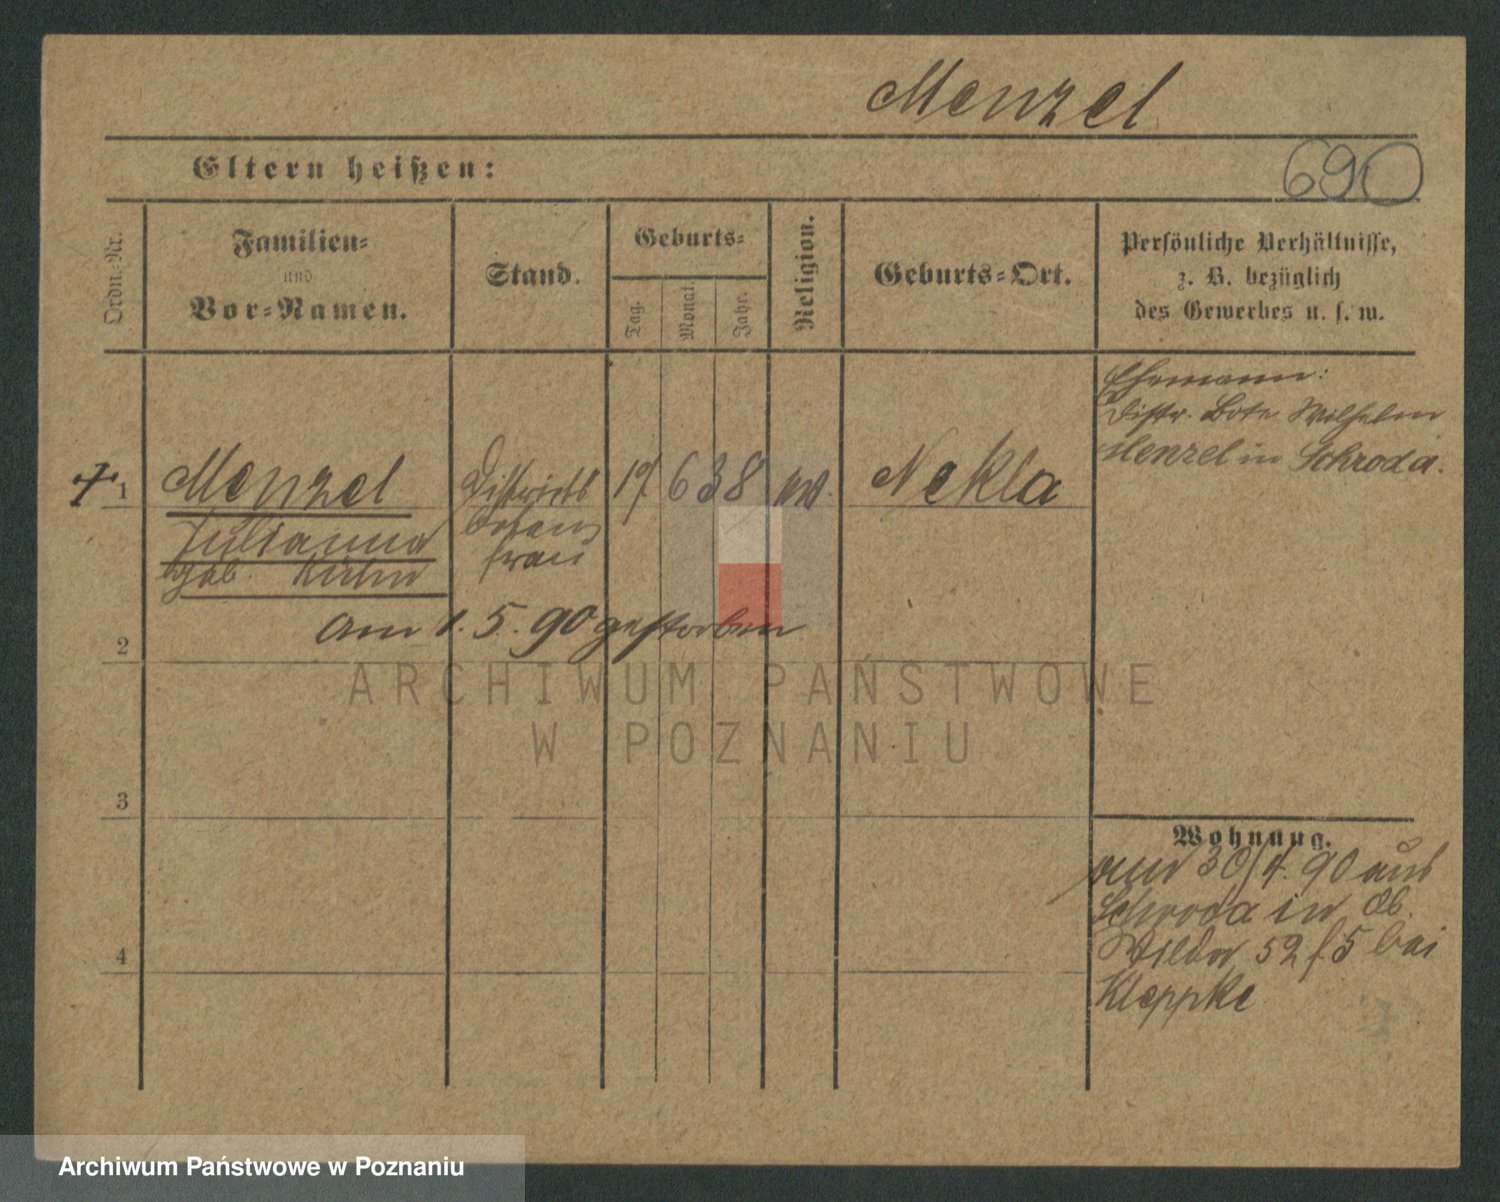 Menzel
Eltern heißen:
690
Ordn.-Nr.
Familien-
und
Vor-Namen.
Stand.
Geburts-
Tag.
Monat.
Jahr.
Religion.
Geburts-Ort.
Persönliche Verhältnisse,
z. B. bezüglich
des Gewerbes u. s. w.
Ehemann:
Distr. Bote Wilhelm
Menzel in Schroda.
1
Menzel
Julianna
geb. Kühn
Distrikts
boten
frau
6 38
ev.
Nekla
am 1. 5. 90 gestorben
2
3
4
Wohnung.
am 30/4. 90 aus
Schroda in Ob.
Wilda 52 f 5 bei
Kleppke
ARCHIWUM PAŃSTWOWE
W POZNANIU
Archiwum Państwowe w Poznaniu